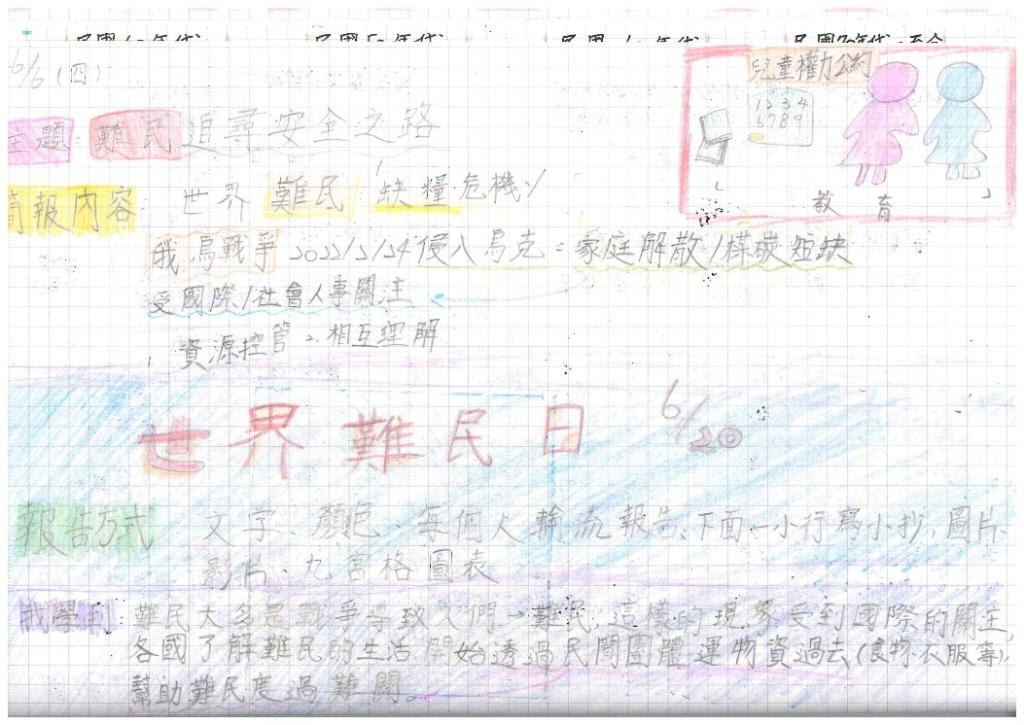 6/6(四)
兒童權力公約
1 2 3 4
6 7 8 9
教育
主題:難民追尋安全之路
簡報內容: 世界難民 缺糧危機
俄烏戰爭 2022/2/24侵入烏克=家庭解散/煤碳短缺
受國際/社會人事關注
1. 資源控管 2.相互理解
世界難民日 6/20
報告方式 文字、顏色、每個人輪流報告、下面一小行寫小抄,圖片、
影片、九宮格圖表
我學到:難民大多是戰爭導致人們→難民,這樣的現象受到國際的關主,
各國了解難民的生活開始透過民間團體運物資過去(食物、衣服等),
幫助難民度過難關。